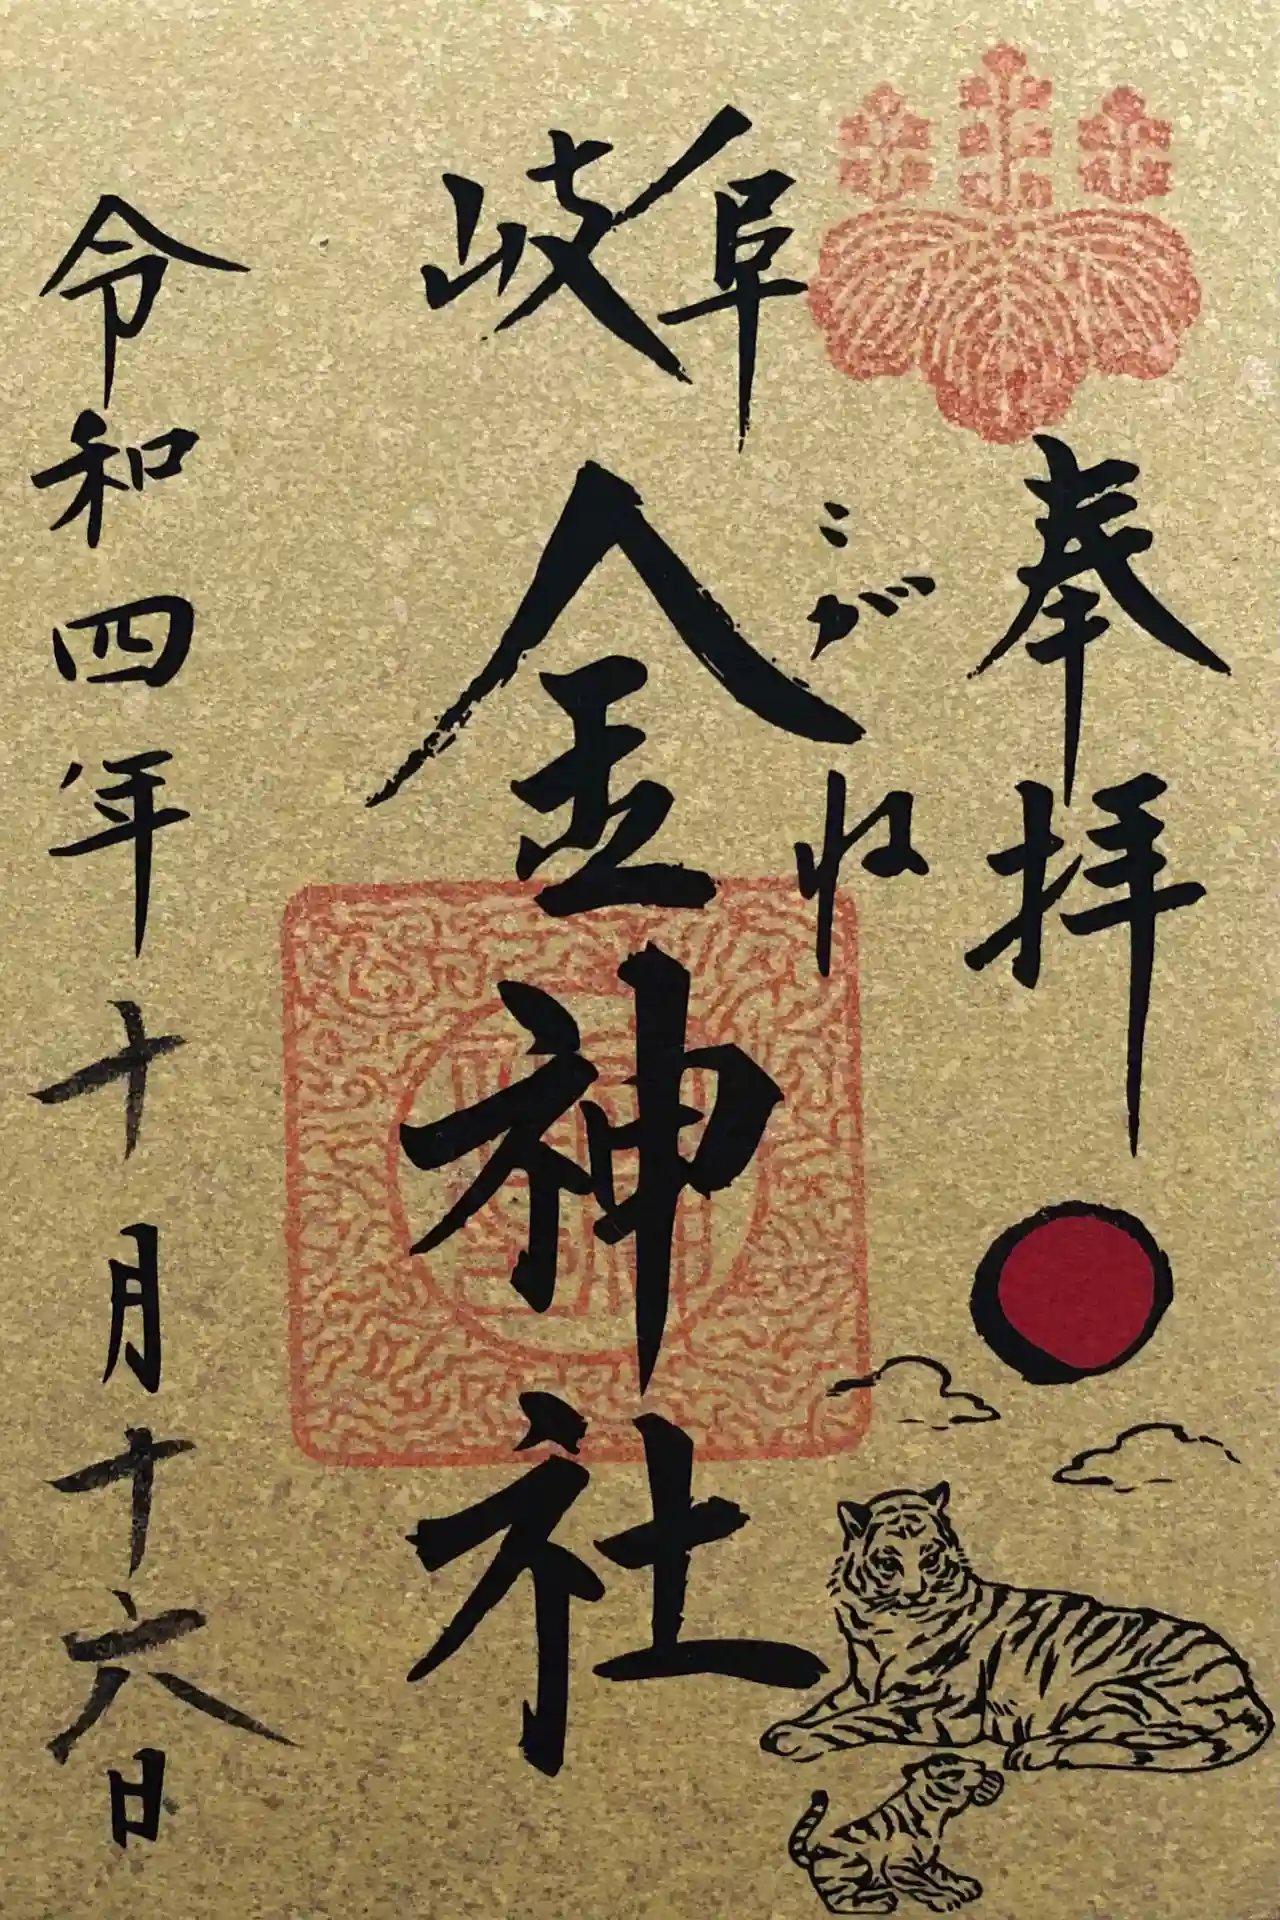 奉拝
岐阜
こがね
金神社
令和四年十月十六日